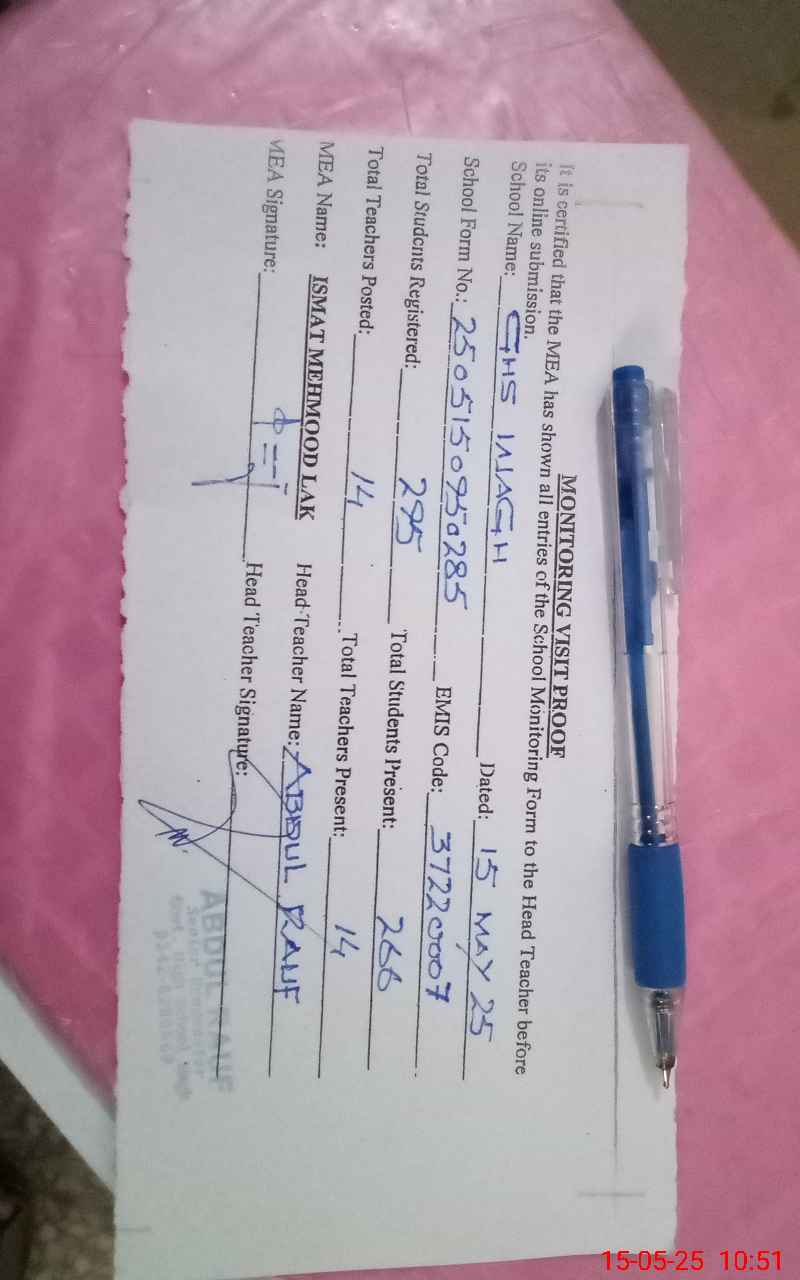 MONITORING VISIT PROOF
It is certified that the MEA has shown all entries of the School Monitoring Form to the Head Teacher before
its online submission.
School Name: GHS WAGH Dated: 15 MAY 25
School Form No.: 2505150950285 EMIS Code: 37220007
Total Students Registered: 295 Total Students Present: 266
Total Teachers Posted: 14 Total Teachers Present: 14
MEA Name: ISMAT MEHMOOD LAK Head Teacher Name: ABDUL RAUF
MEA Signature: Head Teacher Signature:
ABDUL RAUF
Senior Headmaster
Govt. High School
15-05-25 10:51